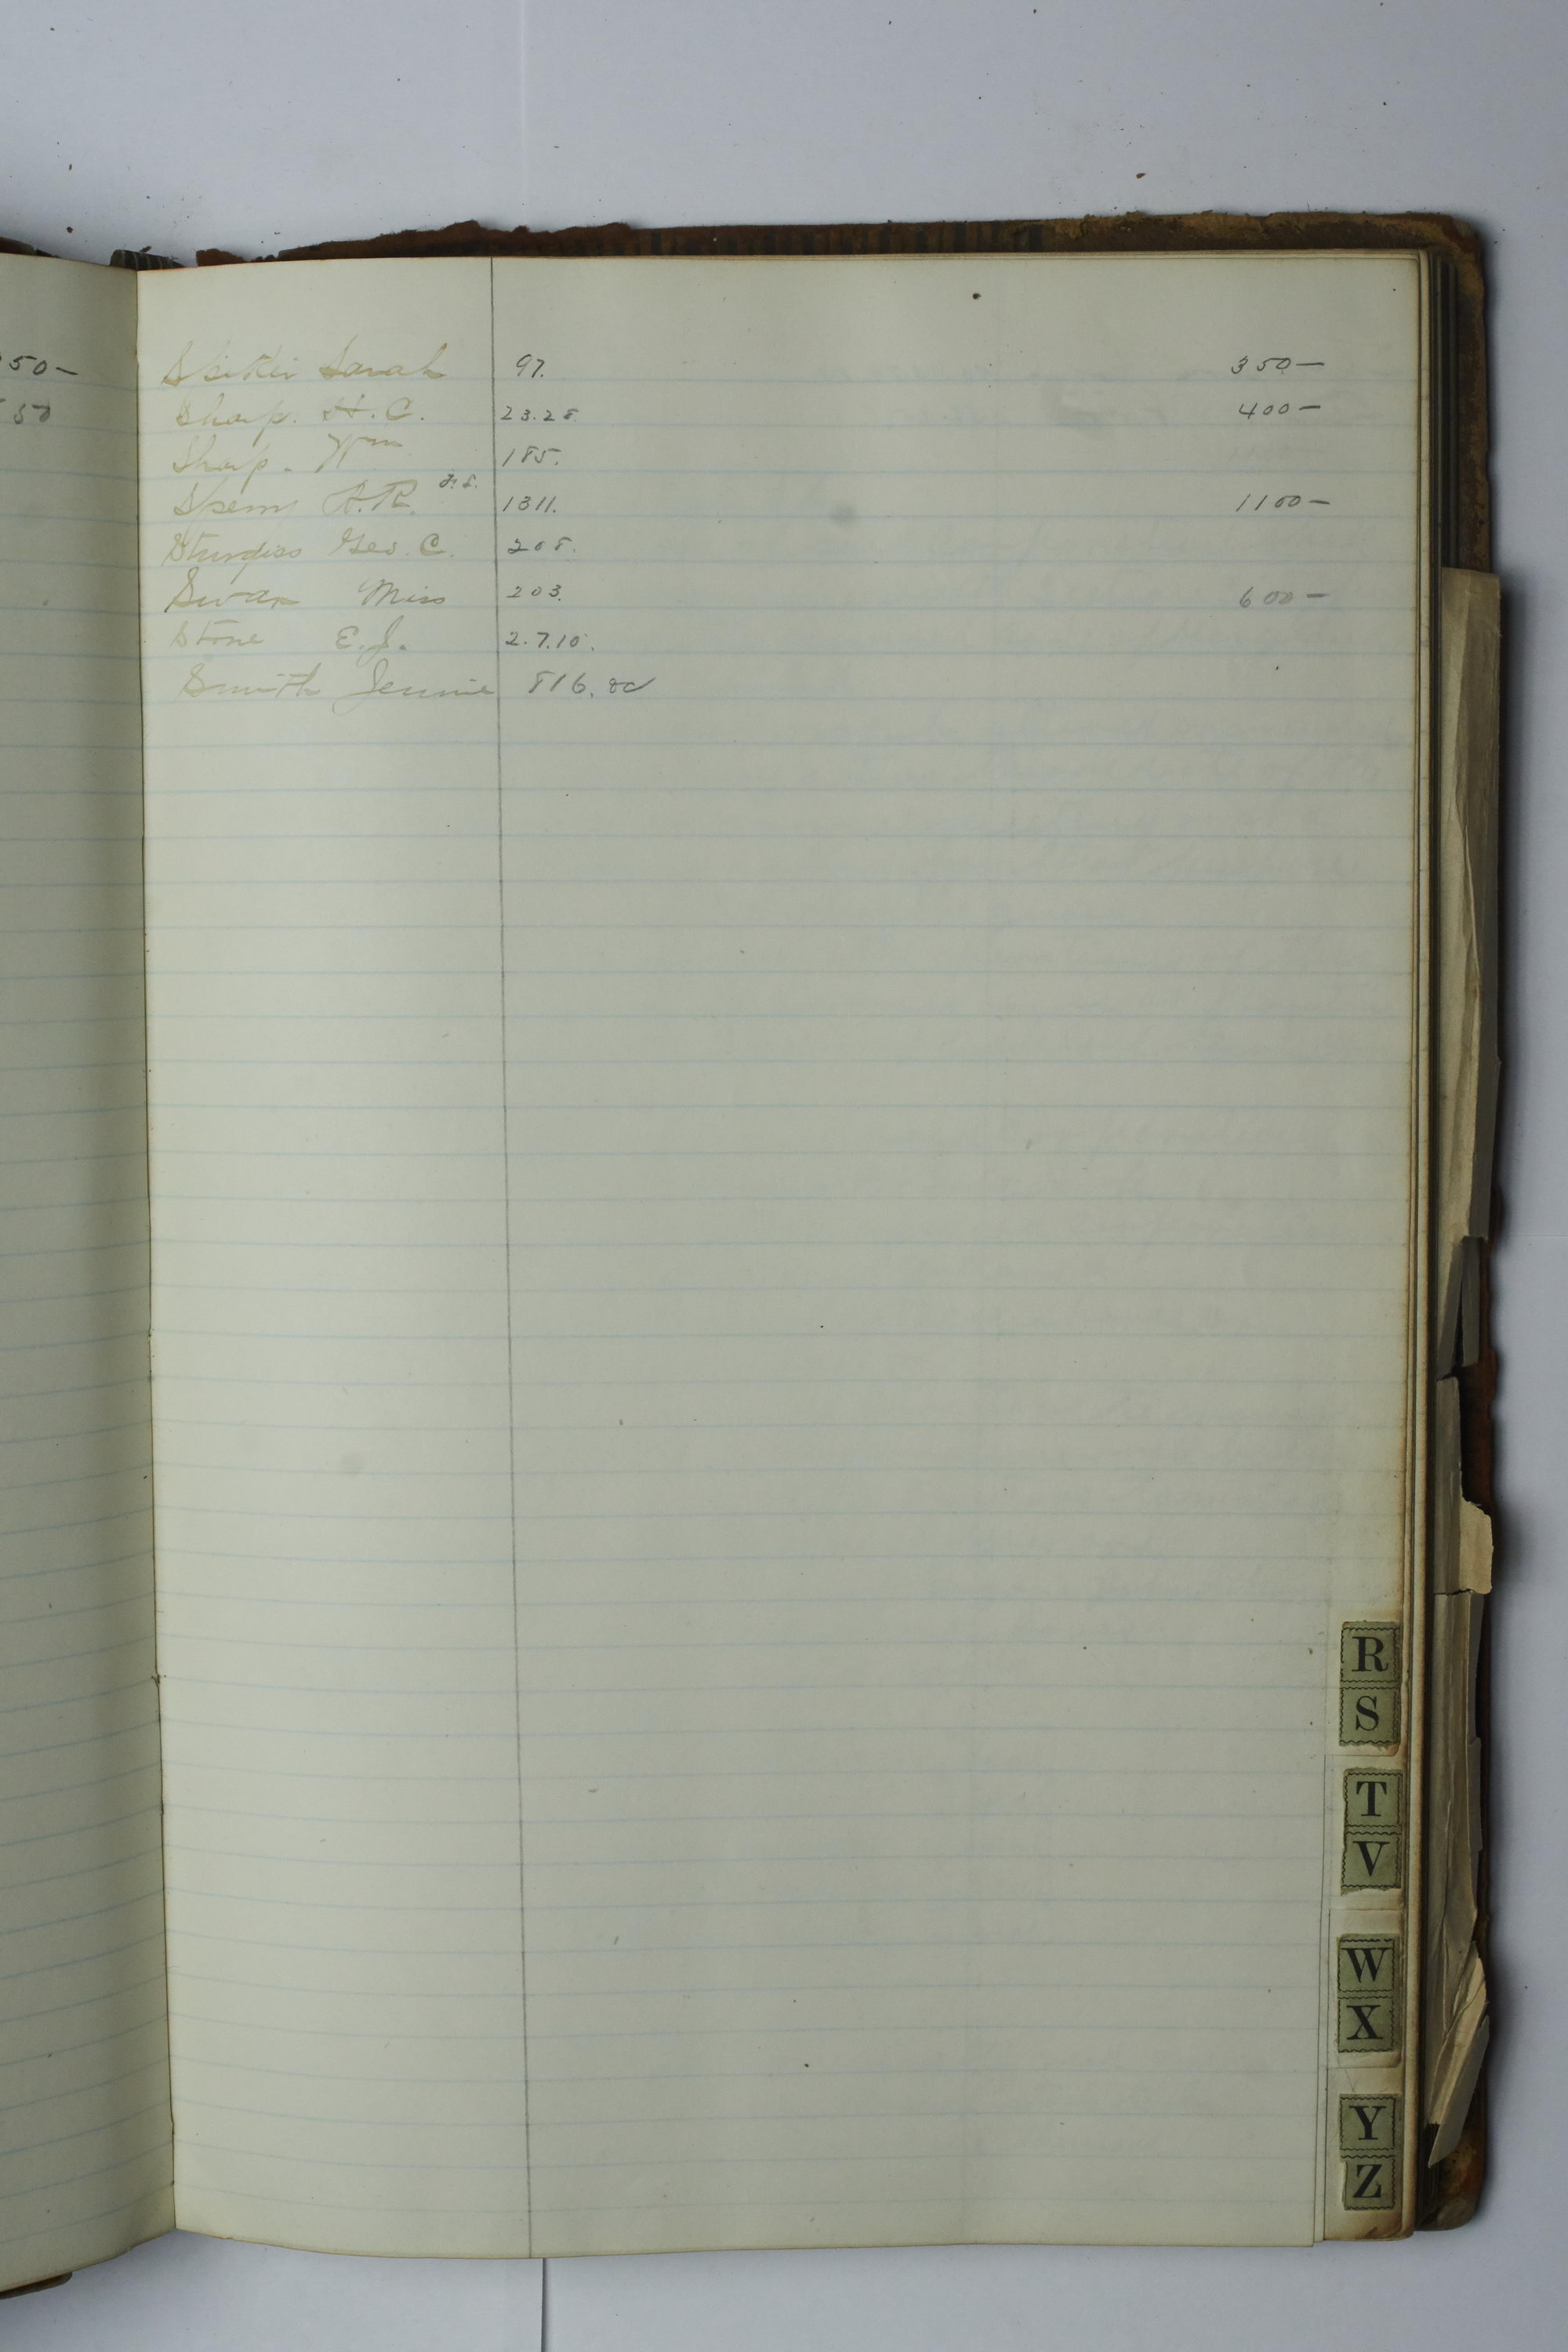 50-
50
Sarah 97. 350-
Sharp. H. C. 23.28. 400-
Sharp. Wm 185.
A.R. 1311. 1100-
Sturgiss Geo. C. 208.
Swan Miss 203. 600-
Stone E.J. 2.7.10.
Smith Jennie 816.
R
S
T
V
W
X
Y
Z